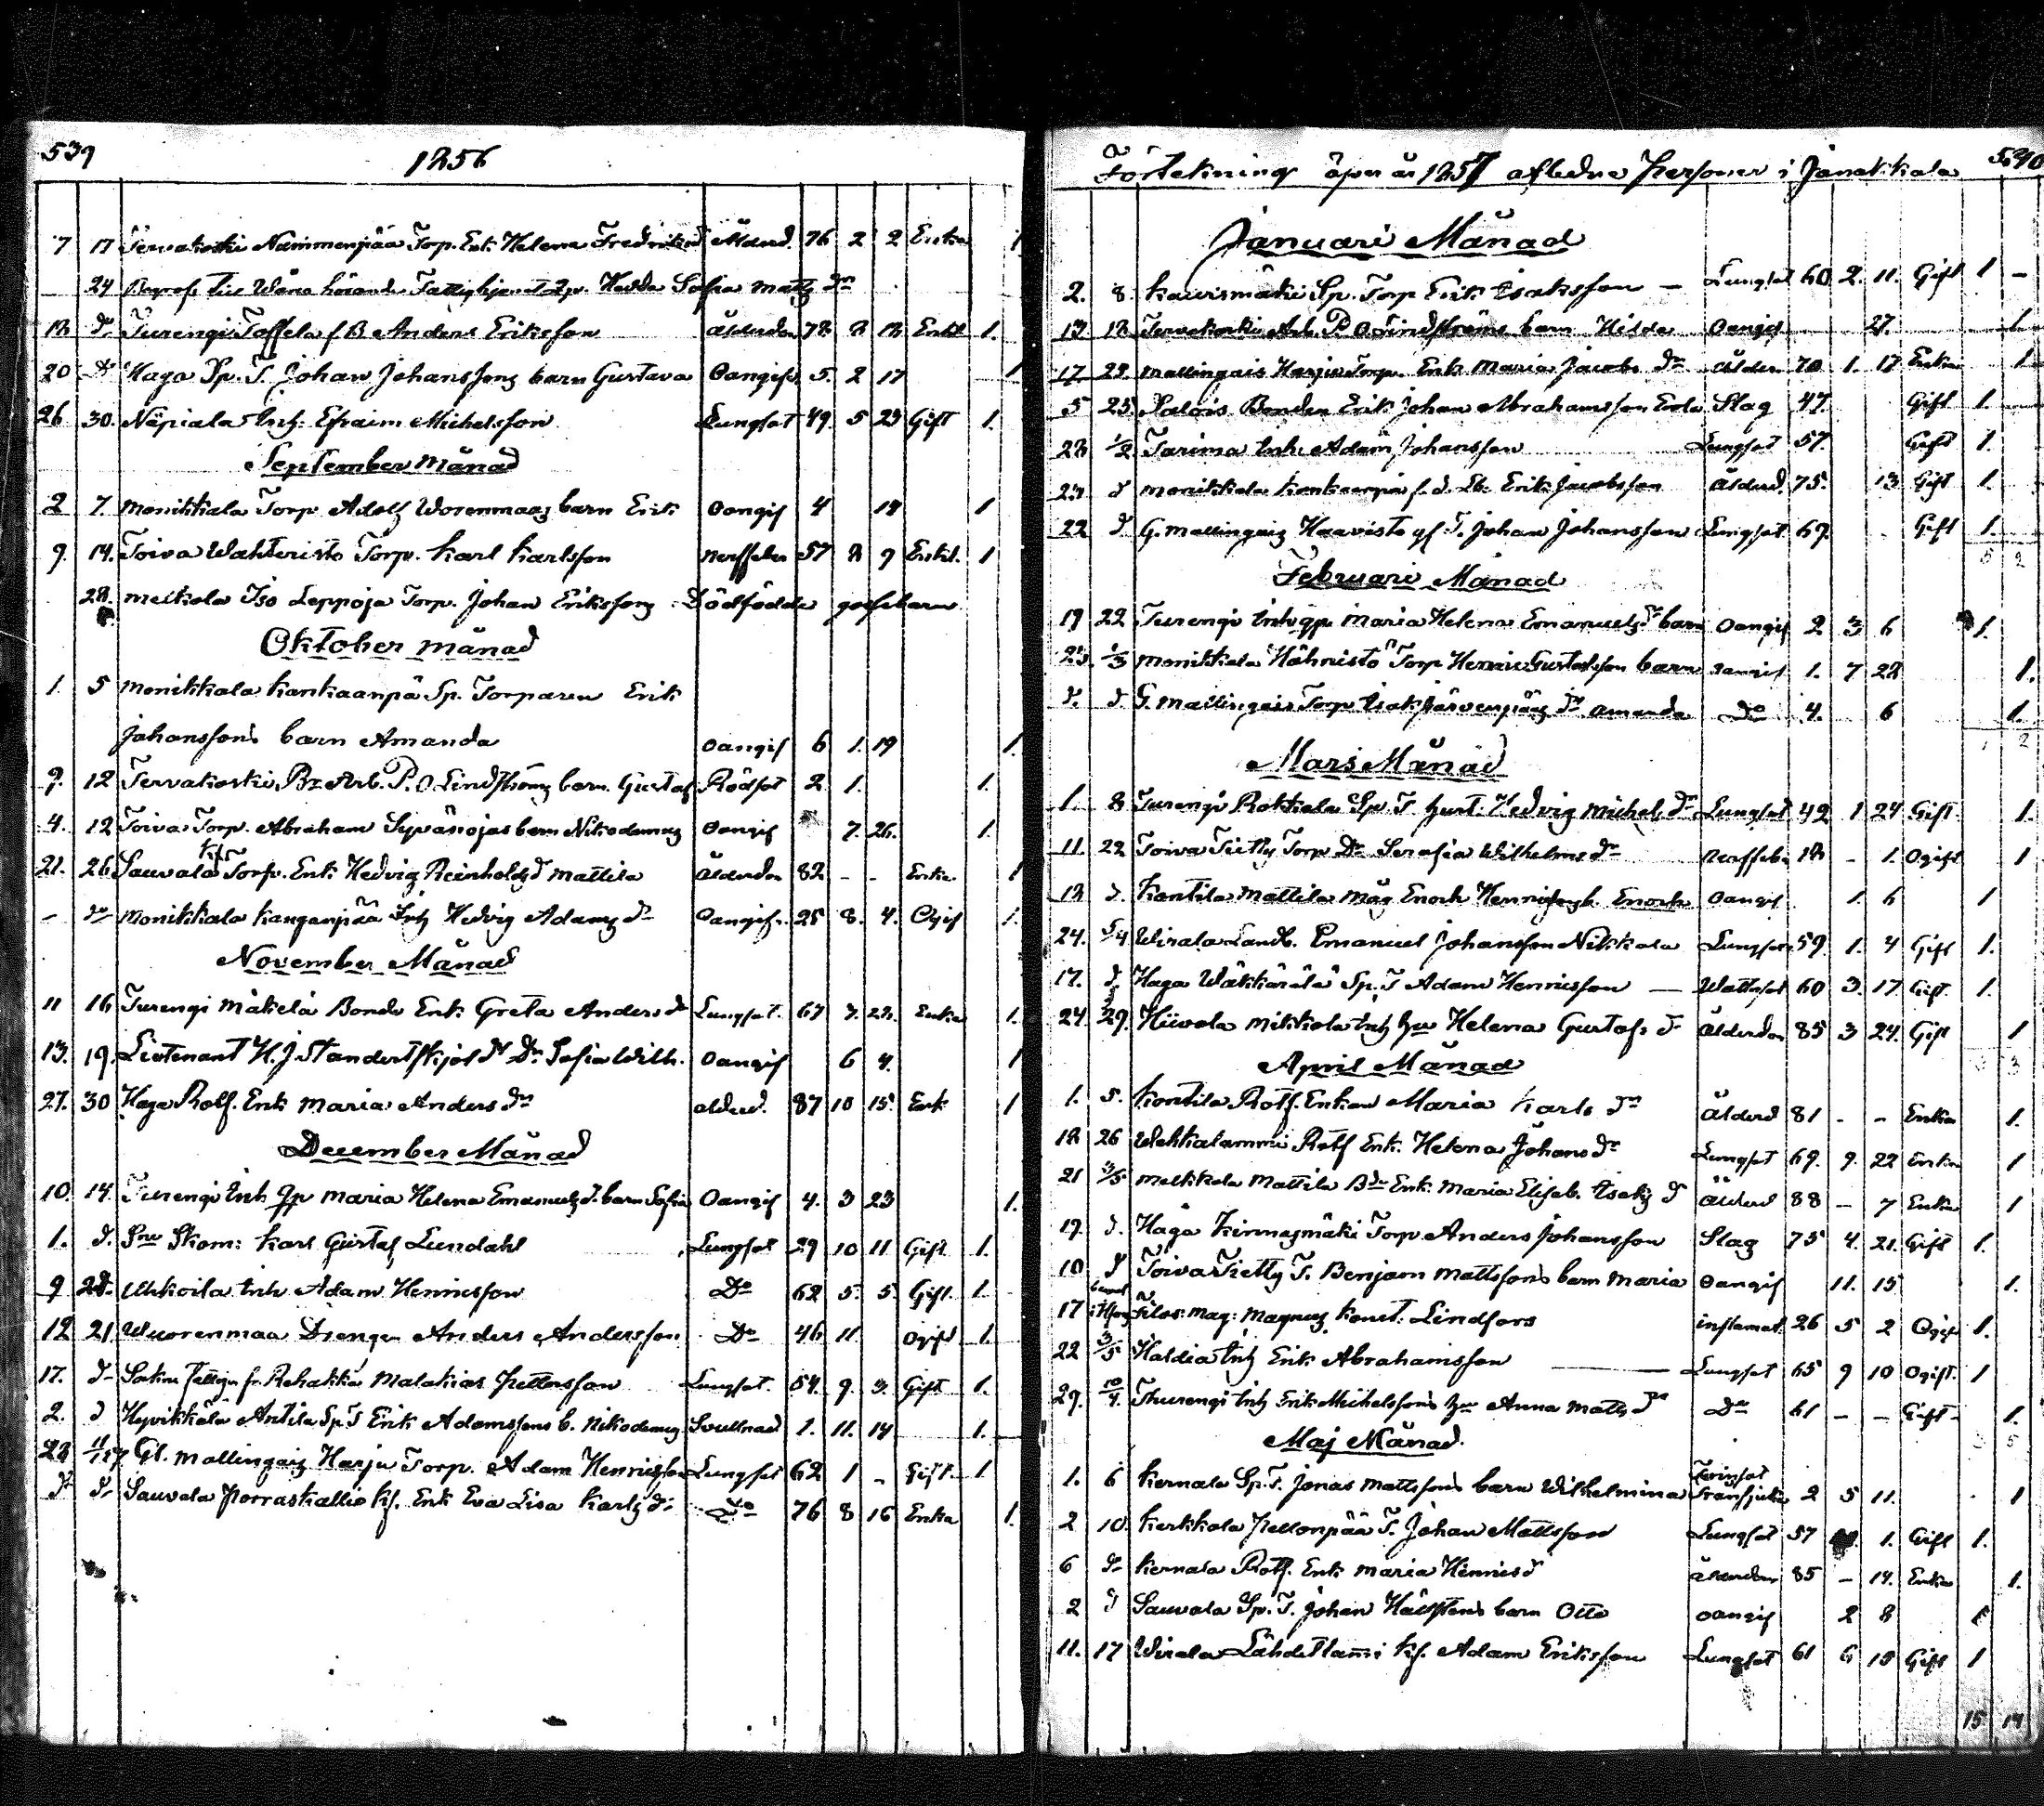 539
1856
7 17 Tervakoski Nummenpää Torp. Enk. Helena Fredriksd Ålderd. 76 2 2 Enka 1
24 Begrofs till Wåna hörande Fattighjon Hedda Sofia Matts dr
12 do Turengi Toffela f. B. Anders Eriksson Ålderdom 72 2 12 Enkl. 1.
20 do Haga Sp. T. Johan Johanssons barn Gustava Oangif. 5. 2 17 1
26 30. Näpiala Inh. Efraim Michelsson Lungsot 49. 5 23 Gift 1.
September Månad
2 7. Monikkala Torp Adolf Worenmaas barn Erik Oangif 4 19 1
9. 14. Toiva Wahteristo Torp. Karl Karlsson Nerffeber 57 2 9 Enkl. 1
28. Melkola Iso Leppoja Torp. Johan Erikssons Dödfödde gossebarn
Oktober månad
1. 5 Monikkala Kankaanpä Sp. Torparen Erik
Johanssons barn Amanda Oangif 6 1. 19 1.
9. 12 Tervakoski Br. Arb. P. O. Lindströms barn Gustaf Rödsot 2 1. 1.
4. 12 Toiva Torp. Abraham Syvänojas barn Nikodemus Oangif 7. 26. 1.
21. 26 Sauvala Kf Torp. Enk. Hedvig Reinholds d Mattila Ålderdom 82 - - Enka 1
- do Monikkala Kanganpää Inh Hedvig Adams dr Oangif. 25 8. 4. Ogif 1.
November Månad
11 16 Turengi Mäkelä Bonde Enk. Greta Anders d Lungsot. 67 7. 22. Enka 1.
13. 19. Lieutenant H. J. Standertskjöld dr Sofia Wilh. Oangif 6 4. 1
27. 30 Haga Rotf. Enk Maria Anders dr Ålderd. 87 10 15. Enk 1
December Månad
10. 14. Turengi Inh. Qp Maria Helena Emanuels d. barn Sofia Oangif 4. 3 23 1.
1. d. Snr Skom: Karl Gustaf Lundahl Lungsot 29 10 11 Gift 1.
9 28. Uhkoila Inh Adam Henricsson Do 62 5. 5. Gift. 1.
12 21 Wuorenmaa Drengen Anders Andersson Do 46 11. Ogift 1.
17. d Rehakka Malakias Pettersson Lungsot. 54. 9. 3. Gift 1.
2. d Hyvikkälä Antila Sp. T Erik Adamssons b. Nikodemus Svullnad 1. 11. 14 1.
28 11/1 57 Gl. Mallingais Harju Torp. Adam Henricsson Lungsot 62 1 - Gift 1
d d. Sauvala Porraskallio Kf. Enk Eva Lisa Karls dr Do 76 8 16 Enka 1.
Förtekning öfver år 1857 afledne Personer i Janakkala 540
Januari Månad
2. 8. Kaurismäki Sp. Torp Erik Isaksson - Lungsot 60 2. 11. Gift 1 -
13 18. Tervakoski Arb. P. O. Lindströms barn Hilda Oangif 27. 1
17. 25. Mallingais Harju Torp. Enk Maria Jacobs dr Ålder 70 1. 17 Enka 1
5 25 Salois Bonden Erik Johan Abrahamsson Slag 47. Gift 1.
28 1/2 Tarima Inh. Adam Johansson Lungsot 57. Gift 1.
23 d Monikkala Kankaanpä f. d. Erik Jacobsson Ålderd. 75. 13 Gift 1.
22 d. G. Mallingais Haavisto gf. T. Johan Johansson Lungsot 69. Gift 1.
5 2
Februari Månad
19 22 Turengi Inh qp. Maria Helena Emanuels dr barn Oangif 2 3 6 1.
25. 1/3 Monikkala Hähnisto Torp Henric Gustafsson barn Oangif 1. 7 22 1.
d. d. G. Mallingais Torp Isak Järvenpääs dr Amanda Do 4. 6 1.
1 2
Mars Månad
1. 8 Turengi Rokkala Sp. T. hust. Hedvig Michels dr Lungsot 42 1 24 Gift 1.
11. 22 Toiva Tietty Torp Dr Serafia Wilhelms dr Nerffeber 18 - 1. Ogift 1
12 d. Kontila Mattila Måg Enoch Henricssons b. Enoch Oangif 1. 6 1
24. 5/4 Wirala Landb. Emanuel Johansson Nikkala Lungsot 59. 1. 4 Gift 1.
17. d. Haga Wäkkärälä Sp. T Adam Henricsson - Wattusot 60 3. 17 Gift. 1.
24 29. Hiivola Mikkola Inh hu Helena Gustafs d Ålderdom 85 3 24. Gift 1
3 3
April Månad
1. 5. Kontila Rotf. Enkan Maria Karls dr Ålderd 81 - - Enka 1.
18 26 Wehkalammi Rotf Enk. Helena Johans dr Lungsot 69. 9. 22 Enka 1
21 3/5 Melkkola Mattila Bde Enk. Maria Elisab. Isaks d Ålderd 88 - 7 Enka 1
19. d. Haga Kinnasmäki Torp Anders Johansson Slag 75 4. 21. Gift 1.
10 d Toiva Tietty T. Benjam Mattssons barn Maria Oangif 11. 15 1.
17 Filos: mag: Magnus Konst: Lindfors inflamat. 26 5 2 Ogift 1.
22 3/5 Haldia Inh Erik Abrahamsson - Lungsot 65 9 10 Ogift. 1
29. Thurengi Inh Erik Michelssons hu Anna Matts dr Do 61 - - Gift 1.
3 5
Maj Månad
1. 6 Kernala Sp. T. Jonas Mattssons barn Wilhelmina 2 5 11. 1
2 10. Kerkkola Pellonpää T. Johan Mattsson Lungsot 57 1. Gift 1.
6 do Kernala Rotf. Enk Maria Henrics d Ålderdom 85 - 14. Enka 1.
2 d Sauvala Sp. T. Johan Hällstens barn Otto Oangif 2 8 1
11. 17 Wirala Lähdetlammi Kf. Adam Eriksson Lungsot 61 6 18 Gift 1
15 14